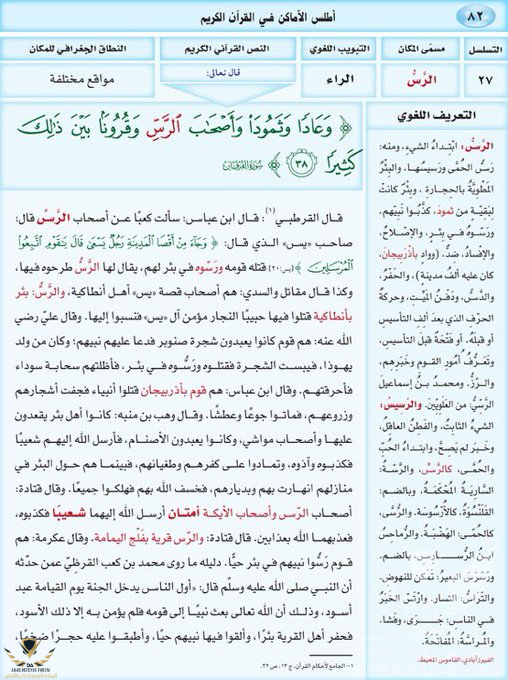 أطلس الأماكن في القرآن الكريم
٨٢
التسلسل
مسمّى المكان
التبويب اللغوي
النص القرآني الكريم
النطاق الجغرافي للمكان
٢٧
الرَّسُّ
الراء
قال تعالى:
مواقع مختلفة
﴿ وَعَادًا وَثَمُودَا۟ وَأَصْحَـٰبَ ٱلرَّسِّ وَقُرُونًۢا بَيْنَ ذَٰلِكَ
كَثِيرًا ٣٨ ﴾ سُورَةُ الفُرْقَان
التعريف اللغوي
الرَّسُّ: ابْتِداءُ الشيءِ، ومنه:
رَسُّ الحُمَّى ورَسِيسُها، والبِئْرُ
المَطْوِيَّةُ بالحِجارةِ، وبِئْرٌ كانتْ
لِبَقِيَّة من ثمودَ، كذَّبُوا نبيَّهم،
ورَسُّوهُ في بِئْرٍ، والإِصْلاحُ،
والإِفْسادُ، ضدٌّ، (ووادٍ بأذْرَبيجان،
كان عليه ألف مدينةٍ)، والحَفْرُ،
والدَّسُّ، ودَفْنُ المَيِّتِ، وحركةُ
الحرْفِ الذي بعدَ ألفِ التأسيسِ
أو قبلَهُ، أو فَتْحَةُ قبلَ التأسيسِ،
وتَعَرُّفُ أُمورِ القومِ وخَبَرِهِم،
والرَّزُّ. ومحمدُ بنُ إسماعيلَ
الرَّسِّيُّ: من العَلَوِيِّينَ. والرَسِيسُ:
الشيءُ الثابِتُ، والفَطِنُ العاقِلُ،
وخَبَرٌ لم يَصِحَّ، وابتداءُ الحُبِّ
والحُمَّى، كالرَّسِّ، والرَّسَّةُ:
السَّارِيَةُ المُحْكَمَةُ، وبالضم:
القَلَنْسُوَةُ، كالأُرْسُوسَةِ. والرُّسَّى،
كالحُمَّى: الهَضْبَةُ. والرُّماحُسُ
ابنُ الرُّسارِسِ، بالضم.
ورَسْرَسَ البعيرُ: تَمَكَّنَ للنهوضِ.
والتَّراسُّ: التسارُ. وارْتَسَّ الخبَرُ
في الناسِ: جَرَى، وفَشا.
والمُراسَّةُ: المُفاتَحَةُ.
الفيروزآبادي، القاموس المحيط.
قال القرطبي(١): قال ابن عباس: سألت كعبًا عن أصحاب الرَّسُّ قال:
صاحب «يس» الذي قال: ﴿ وَجَآءَ مِنْ أَقْصَا ٱلْمَدِينَةِ رَجُلٌ يَسْعَىٰ قَالَ يَـٰقَوْمِ ٱتَّبِعُوا۟
ٱلْمُرْسَلِينَ ﴾ [يس: ٢٠] قتله قومه ورَسُّوه في بئر لهم، يقال لها الرَّسُّ طرحوه فيها،
وكذا قال مقاتل والسدي: هم أصحاب قصة «يس» أهل أنطاكية، والرَّسُّ: بئر
بأنطاكية قتلوا فيها حبيبًا النجار مؤمن آل «يس» فنسبوا إليها. وقال عليّ رضي
الله عنه: هم قوم كانوا يعبدون شجرة صنوبر فدعا عليهم نبيهم؛ وكان من ولد
يهوذا، فيبست الشجرة فقتلوه ورَسُّوه في بئر، فأظلتهم سحابة سوداء
فأحرقتهم. وقال ابن عباس: هم قوم بأذربيجان قتلوا أنبياء فجفت أشجارهم
وزروعهم، فماتوا جوعًا وعطشًا. وقال وهب بن منبه: كانوا أهل بئر يقعدون
عليها وأصحاب مواشي، وكانوا يعبدون الأصنام، فأرسل الله إليهم شعيبًا
فكذبوه وآذوه، وتمادوا على كفرهم وطغيانهم، فبينما هم حول البئر في
منازلهم انهارت بهم وبديارهم، فخسف الله بهم فهلكوا جميعًا. وقال قتادة:
أصحاب الرّس وأصحاب الأيكة أمتان أرسل الله إليهما شعيبًا فكذبوه،
فعذبهما الله بعذابين. قال قتادة: والرّس قرية بفَلْج اليمامة. وقال عكرمة: هم
قوم رَسُّوا نبيهم في بئر حيًّا. دليله ما روى محمد بن كعب القرظيّ عمن حدّثه
أن النبي صلى الله عليه وسلّم قال: «أول الناس يدخل الجنة يوم القيامة عبد
أسود، وذلك أن الله تعالى بعث نبيًّا إلى قومه فلم يؤمن به إلا ذلك الأسود،
فحفر أهل القرية بئرًا، وألقوا فيها نبيهم حيًّا، وأطبقوا عليه حجرًا ضخمًا،
١- الجامع لأحكام القرآن، ج ١٣، ص ٣٢.
ARAB DEFENSE FORUM